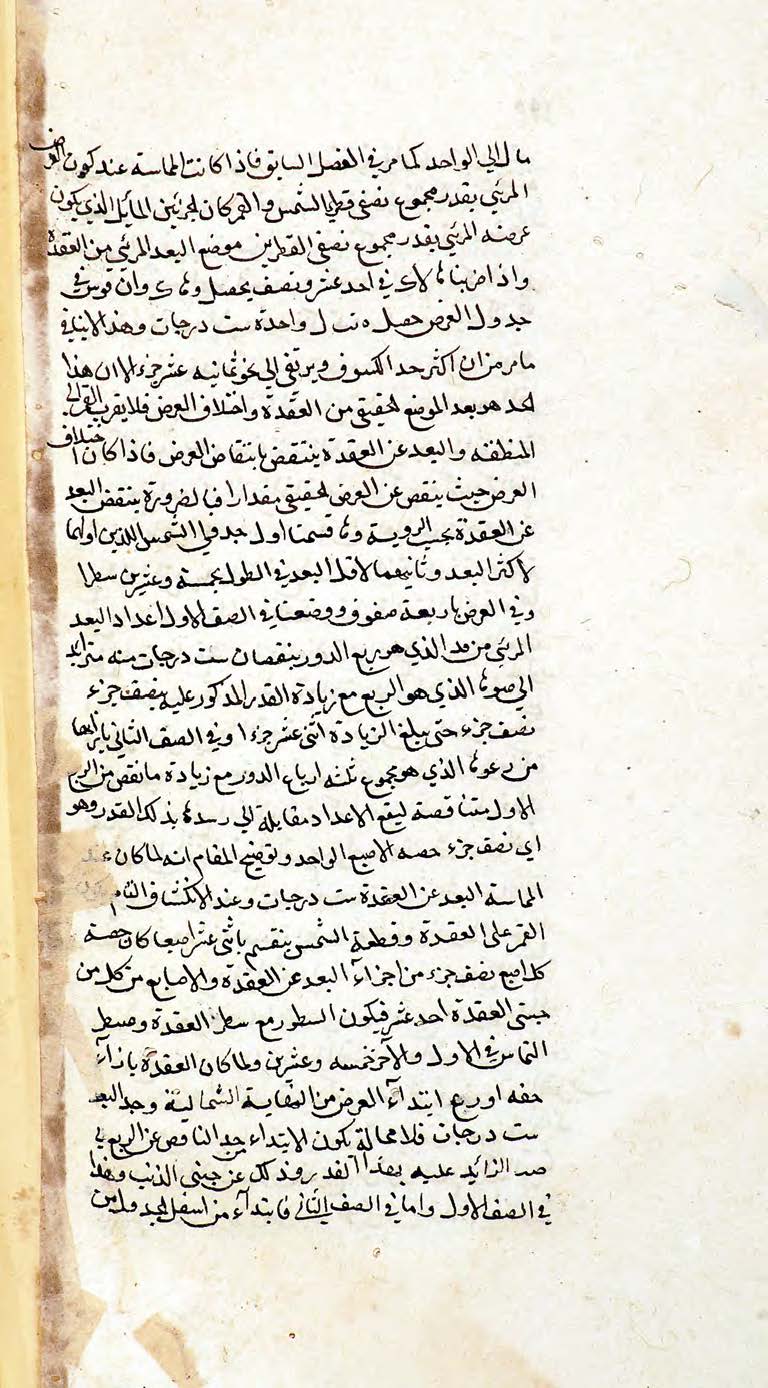 مال الي الواحد كما مر في الفصل السابق فاذا كانت المماسة عند كون العرض
المرئي بقدر مجموع نصفي قطري الشمس والقمر كان الجزئين المايل الذي يكون
عرضه المرئي بقدر مجموع نصفي القطرين موضع البعد المرئي من العقدة
واذا ضربنا في احد عشر ونصف يحصل وان قوس في
جدول العرض حصل واحدة ست درجات وهذا لاينافي
مامر من ان اكثر حد الكسوف ويرتقي الي نحو ثمانيه عشر جزء الا ان هذا
الحد هو بعد الموضع الحقيقي من العقدة واختلاف العرض فلا يقرب القمر الي
المنطقه والبعد عن العقدة ينتقص بانتقاص العرض فاذا كان اختلاف
العرض حيث ينقص عن العرض الحقيقي مقدارا فبالضرورة ينتقص البعد
عن العقدة بحسب الروية قسمنا اول جدولي الشمس اللذين اولهما
لاكثر البعد وثانيهما لاقل البعد في الطول بخمسة وعشرين سطرا
وفي العرض باربعة صفوف ووضعنا في الصف الاول اعداد البعد
المرئي من الذي هو ربع الدور بنقصان ست درجات منه متزايد
الي الذي هو الربع مع زيادة القدر المذكور عليه بنصف جزء
نصف جزء حتي يبلغ الزيادة اثني عشر جزءا وفي الصف الثاني
من الذي هو مجموع ثلثه ارباع الدور مع زيادة ما نقص من الربع
الاول متناقصة ليقع الاعداد مقابلة الي بذلك القدر وهو
اي نصف جزء حصه الاصبع الواحد وتوضيح المقام انه لما كان عند
المماسة البعد عن العقدة ست درجات وعند الانكساف التام
القمر علي العقدة وقطعة الشمس ينقسم باثني عشر اصبعا كان حصة
كل اصبع نصف جزء من اجزاء البعد عن العقدة والاصابع من كل من
جنبتي العقدة احد عشر فيكون السطور مع سطر العقدة وسطر
التماس في الاول والآخر خمسه وعشرين ولما كان العقدة بازآء
ابتدآء العرض من الشمالية وحد البعد
ست درجات فلا محالة يكون الابتداء الناقص عن الربع في
الزائد عليه بهذا القدر وذلك عن جنبتي الذنب وهذا
في الصف الاول واما في الصف الثاني فابتدآء من اسفل الجدولين